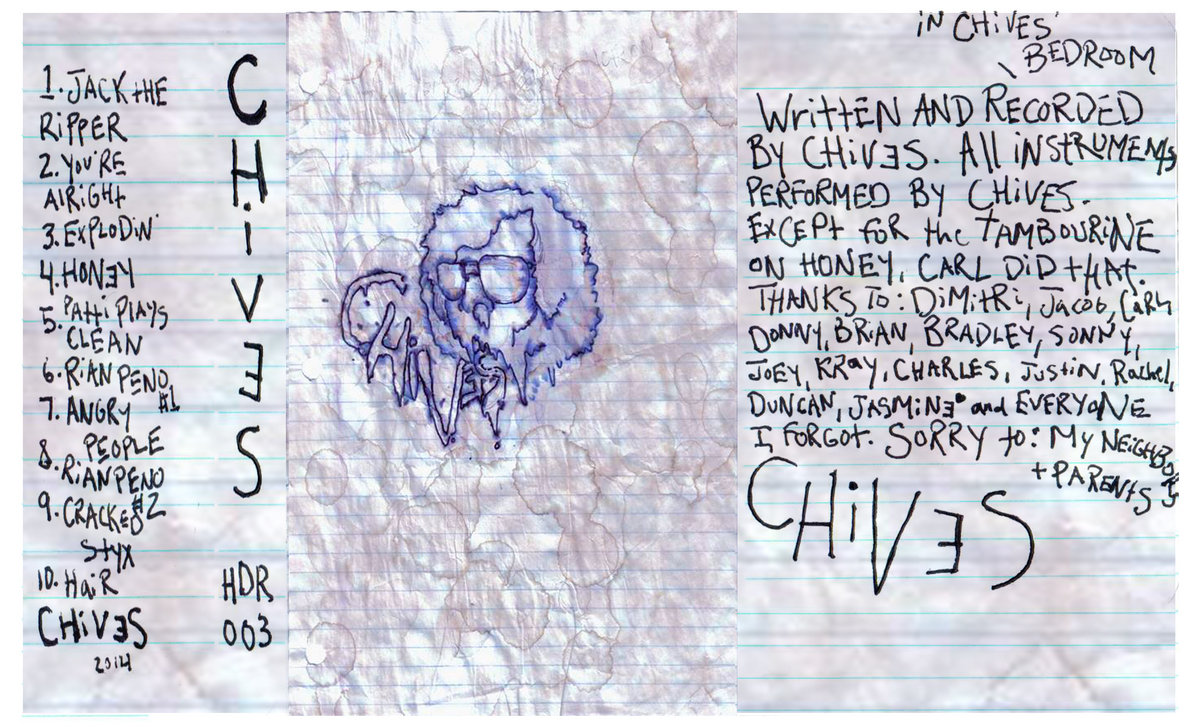 1. JACK tHE
RiPPER
2. YOU'RE
AlRiGHt
3. EXPLODiN'
4. HONƎY
5. PAtti PlAYS
CLEAN
6. RiAN PENO
#1
7. ANGRY
PEOPLE
8. RiANPENO
#2
9. CRACKED
Styx
10. HaiR
CHiVƎS
2014
CHiVƎS
HDR
003
CHiVES
iN CHiVES'
BEDROOM
WRittEN AND RECORDED
BY CHiVƎS. All iNStRUMENtS
PERFORMED BY CHiVES.
EXCEPt FOR the tAMBOURiNE
ON HONEY, CARL DiD tHAt.
THANKS To: DiMitRi, Jacob, CaRl,
DONNY, BRiAN, BRADLEY, SONNY,
JoEY, KRay, CHARLES, JUStiN, Rachel,
DUNCAN, JASMiNƎ and EVERYONE
I FORGOt. SORRY to: MY NEiGHBORS
+ PARENtS
CHiVƎS